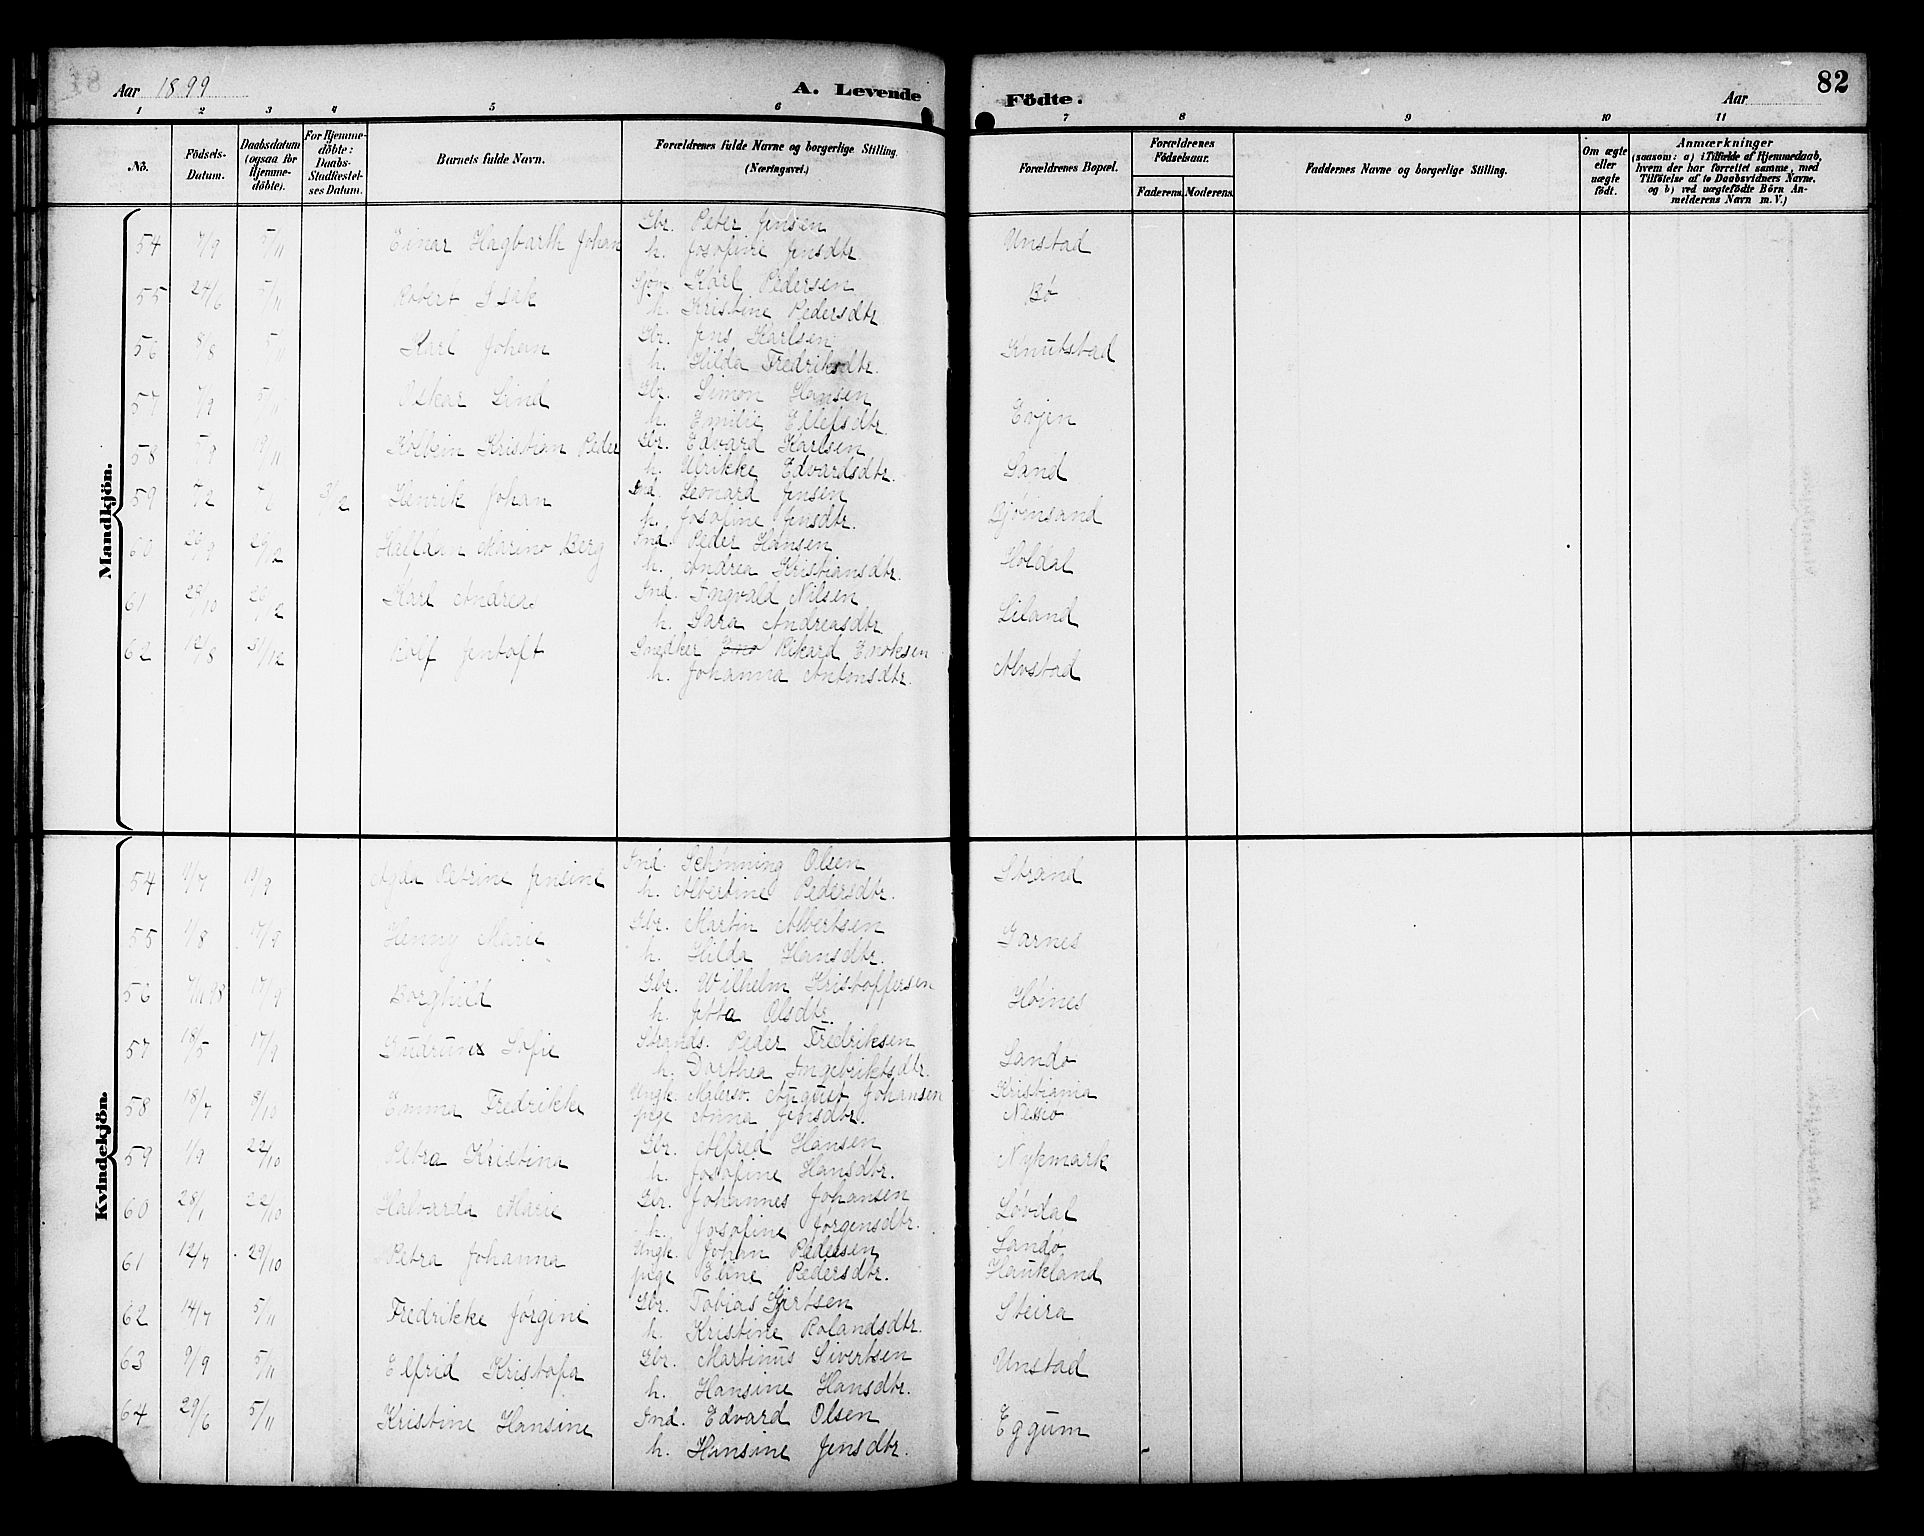 Aar 1899
A. Levende
Födte.
Aar
82
1 2 3 4 5 6 7 8 9 10 11
No.
Födsels-Datum.
Daabsdatum (ogsaa for Hjemmedöbte).
For Hjemmedöbte: Daabs-Stadfæstelses Datum.
Barnets fulde Navn.
Forældrenes fulde Navne og borgerlige Stilling. (Næringsvei.)
Forældrenes Bopæl.
Forældrenes Födselsaar.
Faderens. Moderens.
Faddernes Navne og borgerlige Stilling.
Om ægte eller uægte födt.
Anmærkninger
(saasom: a) i Tilfælde af Hjemmedaab, hvem der har forrettet samme, med Tilföielse af to Daabsvidners Navne, og b) ved uægtefödte Börn Anmelderens Navn m. V.)
Mandkjön.
54 7/9 5/11 Einar Hagbarth Johan Gbr. Peter Jensen Unstad
h. Josefine Jensdtr.
55 24/6 5/11 Robert Isak Sjøm. Karl Pedersen Bø
h. Kristine Pedersdtr.
56 8/8 5/11 Karl Johan Gbr. Jens Karlsen Knutstad
h. Hilda Fredriksdtr.
57 7/9 5/11 Oskar Lind Gbr. Simon Hansen Evjen
h. Emilie Ellefsdtr.
58 5/9 19/11 Kolbein Kristian Peder Gbr. Edvard Karlsen Sand
h. Ulrikke Edvardsdtr.
59 3/12 Henrik Johan Ind. Leonard Jensen Bjørnsand
h. Josefine Jensdtr.
60 26/9 26/12 Halfdan Marino Berg Ind. Peder Hansen Holdal
h. Andrea Kristiansdtr.
61 28/10 26/12 Karl Andreas Ind. Ingvald Nilsen Liland
h. Sara Andreasdtr.
62 12/8 31/12 Rolf Jentoft Snedker Rikard Enoksen Alvstad
h. Johanna Antonsdtr.
Kvindekjön.
54 Agda Petrine Jensine Ind. Schønning Olsen Strand
h. Albertine Pedersdtr.
55 1/8 17/9 Henny Marie Gbr. Martin Albertsen Garnes
h. Hilda Hansdtr.
56 7/11 98 17/9 Borghild Gbr. Wilhelm Kristoffersen Høines
h. Jetta Olsdtr.
57 18/5 17/9 Gudrun Sofie Strands. Peder Fredriksen Sandø
h. Dorthea Ingebriktsdtr.
58 18/7 8/10 Emma Fredrikke Ungk. Malersv. August Johansen Kristiania
pige Anna Jensdtr. Nessio
59 1/9 22/10 Petra Kristina Gbr. Alfred Hansen Nykmark
h. Josefine Hansdtr.
60 28/1 22/10 Halvarda Marie Gbr. Johannes Johansen Løvdal
h. Josefine Jørgensdtr.
61 12/7 29/10 Petra Johanna Ungk. Johan Pedersen Sandø
pige Eline Pedersdtr. Haukland
62 14/7 5/11 Fredrikke Jørgine Gbr. Tobias Gjertsen Steira
h. Kristine Rolandsdtr.
63 9/9 5/11 Elfrid Kristofa Gbr. Martinus Sivertsen Unstad
h. Hansine Hansdtr.
64 29/6 5/11 Kristine Hansine Ind. Edvard Olsen Eggum
h. Hansine Jensdtr.